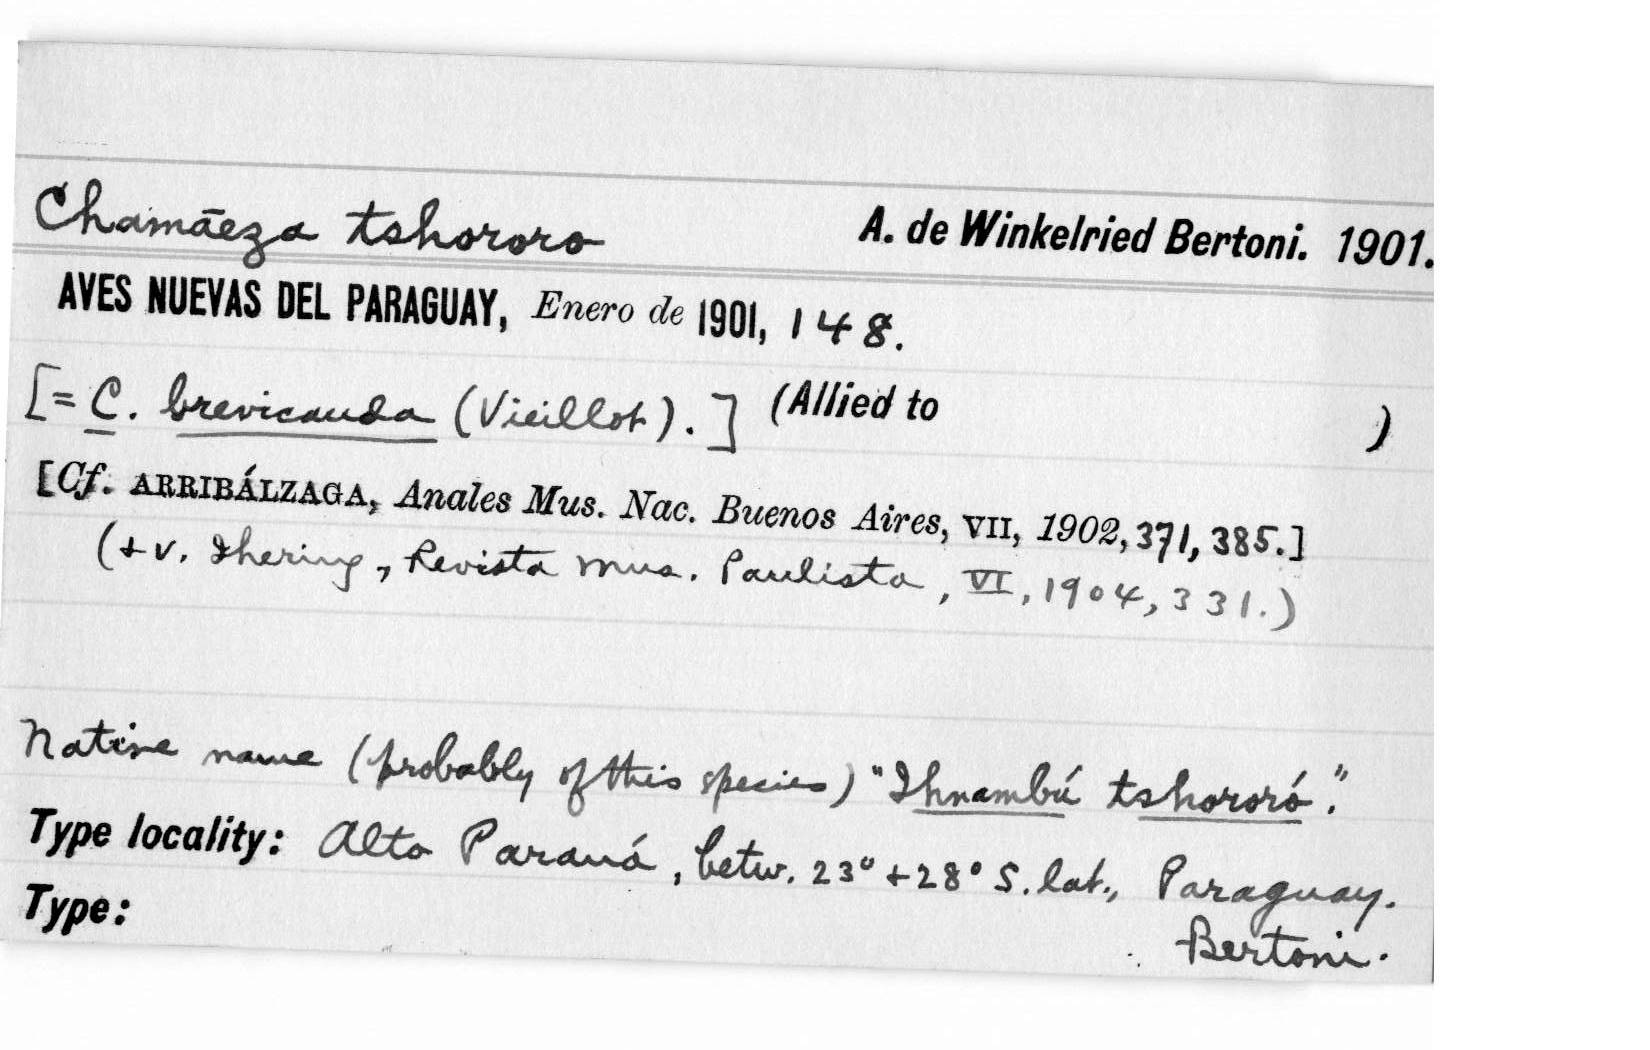 Chamāeza tshororo A. de Winkelried Bertoni. 1901.
AVES NUEVAS DEL PARAGUAY, Enero de 1901, 148.
[= C. brevicauda (Vieillot).] (Allied to )
[Cf. ARRIBÁLZAGA, Anales Mus. Nac. Buenos Aires, VII, 1902, 371, 385.]
(+ v. Ihering, Revista Mus. Paulista, VI, 1904, 331.)
Native name (probably of this species) "Ihnambú tshororó".
Type locality: Alto Paraná, betw. 23° + 28° S. lat., Paraguay.
Type: Bertoni.